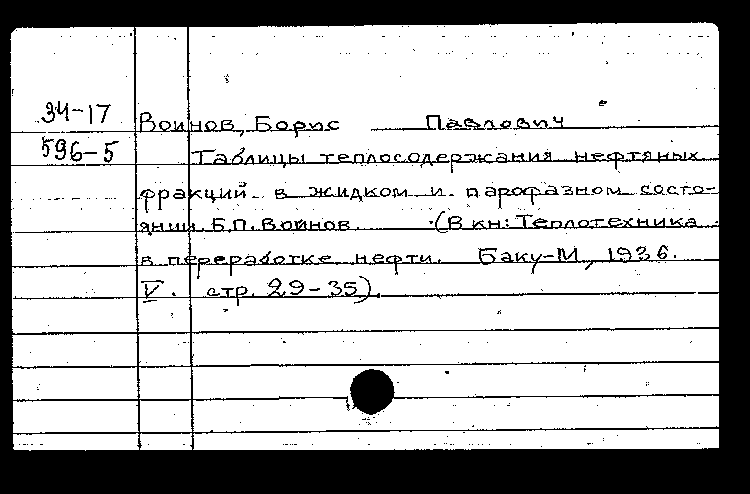 34-17
Воинов, Борис Павлович
596-5
Таблицы теплосодержания нефтяных
фракций в жидком и парофазном состо-
янии Б.П. Воинов. (В кн: Теплотехника
в переработке нефти. Баку-М, 1936.
V. стр. 29-35).